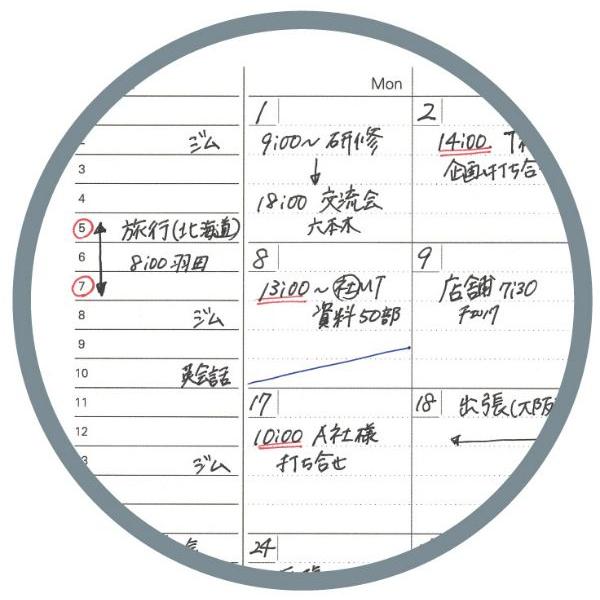 ジム
3
4
5 旅行(北海道)
6 8:00 羽田
7
8 ジム
9
10 英会話
11
12
ジム
Mon
1
9:00〜 研修
↓
18:00 交流会
六本木
8
13:00〜 社MT
資料50部
17
10:00 A社様
打ち合せ
24
2
14:00
企画打ち合
9
店舗 7:30
18 出張(大阪